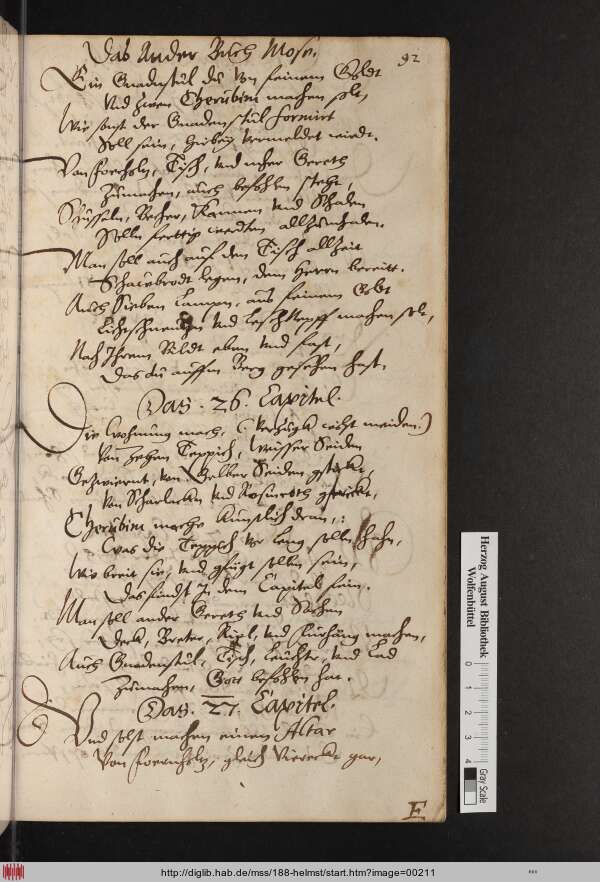 Das Ander Buch Mose. 92
Ein Gnadenstul du von feinem Goldt
Und zwen Cherubim machen solt,
Wie sonst der Gnadenstul formirt
Soll sein, hiebey vermeldet wirdt.
Von Foernholz, Tisch, und mher Gereth
Zumachen, auch befohlen steht,
Schüsseln, Becher, Kannen und Schalen
Solln ferttig werden allzumhalen.
Man soll auch auf den Tisch allzeit
Schawbrodt legen, dem Herrn bereitt.
Auch Sieben Lampen, aus feinem Golt
Lichtschneutzen und Leschnepff machen solt,
Nach Ihrem Bildt eben und fast,
Das du auffm Berg gesehen hast.
Das 26. Capitel.
Die Wohnung mach, (Verzugk nicht meiden.)
Von zehen Teppich, Weisser Seiden
Gezwiernt, von Gelber Seiden gstickt,
Von Scharlacken und Rosinroth gstrickt,
Cherubim mache künstlich dran,:
Was die Teppich vor leng solln hahn,
Wie breit sie, und gfügt sollen sein,
Das findst in dem Capitel fein.
Man soll ander Gereth und Sachen
Deck, Breter, Rigel, und machen,
Auch Gnadenstul, Tisch, Leuchter, und Lad
Zumachen, Gott befohlen hat.
Das 27. Capitel.
Und solst machen einen Altar
Von Foernholz, gleich Viereckt gar,
E
Herzog August Bibliothek
Wolfenbüttel
0 1 2 3 4
Gray Scale
http://diglib.hab.de/mss/188-helmst/start.htm?image=00211